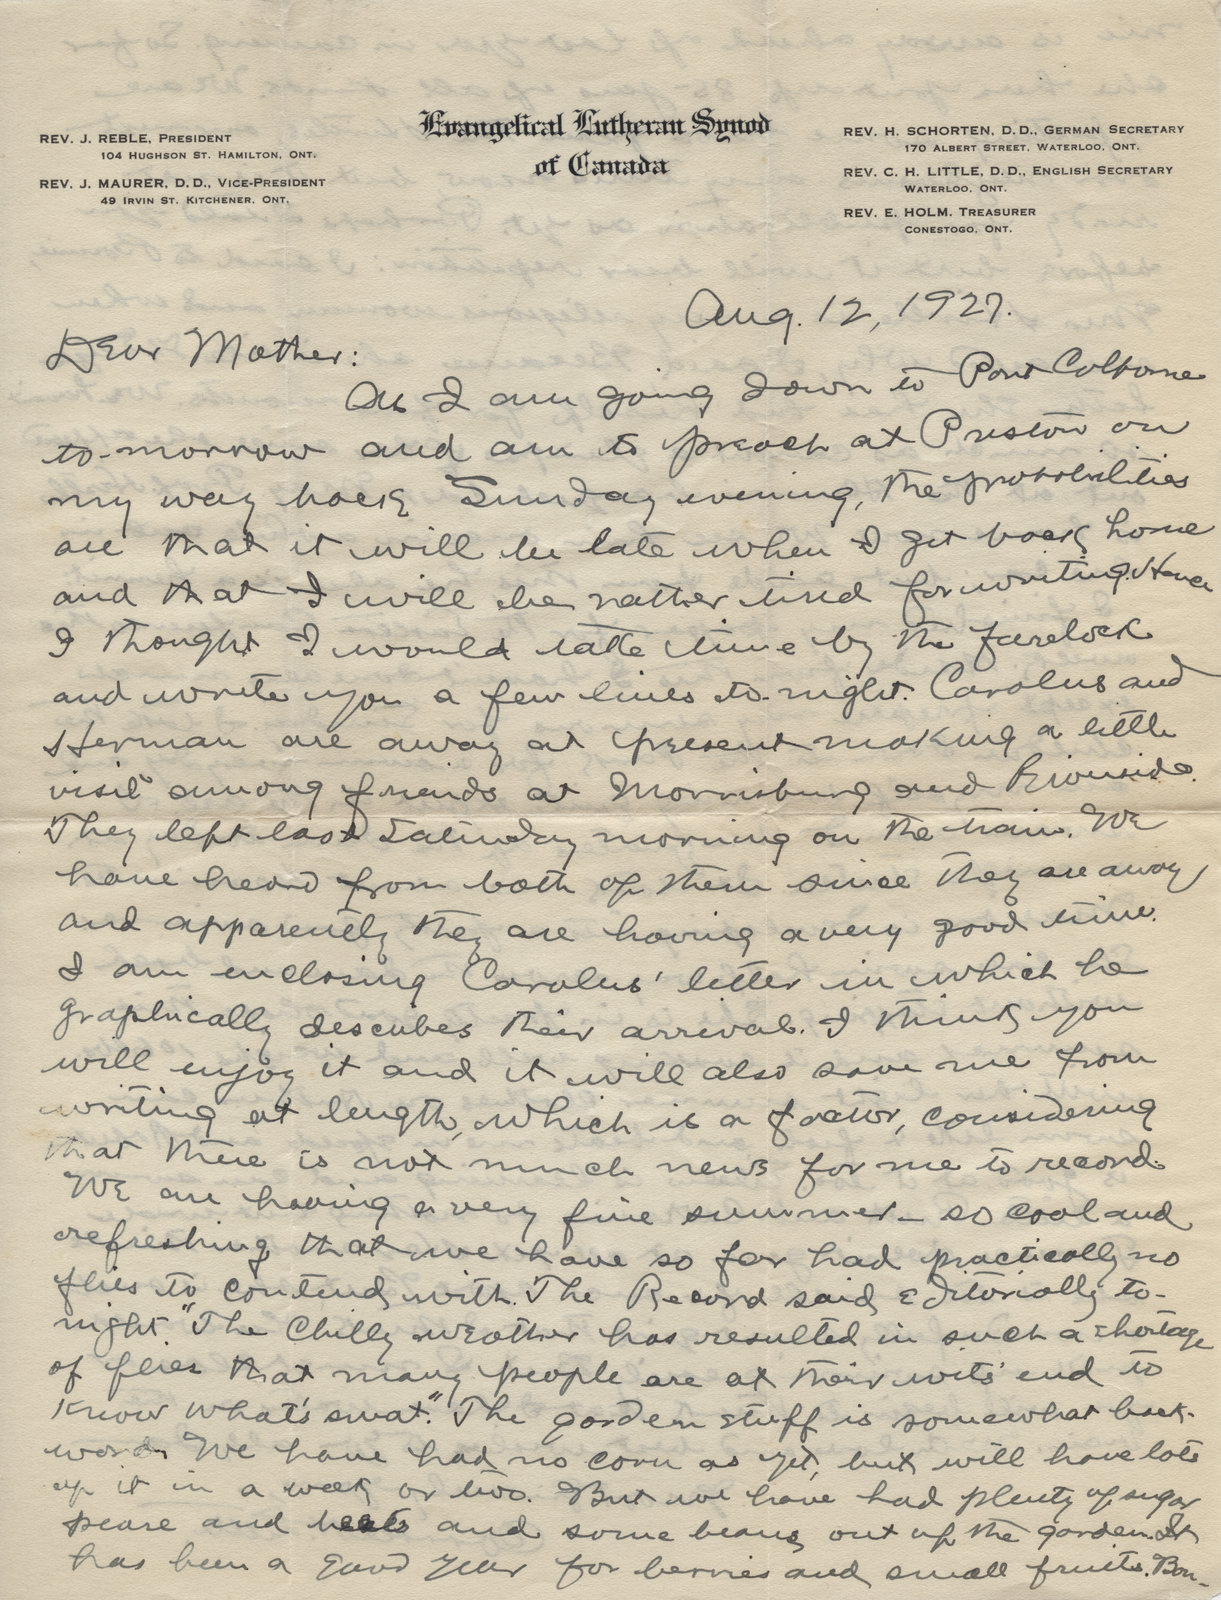 Evangelical Lutheran Synod
of Canada
REV. J. REBLE, PRESIDENT
104 HUGHSON ST. HAMILTON, ONT.
REV. J. MAURER, D.D., VICE-PRESIDENT
49 IRVIN ST. KITCHENER, ONT.
REV. H. SCHORTEN, D.D., GERMAN SECRETARY
170 ALBERT STREET, WATERLOO, ONT.
REV. C. H. LITTLE, D.D., ENGLISH SECRETARY
WATERLOO, ONT.
REV. E. HOLM. TREASURER
CONESTOGO, ONT.
Aug. 12, 1927.
Dear Mother:
As I am going down to Port Colborne
to-morrow and am to preach at Preston on
my way back Sunday evening, the probabilities
are that it will be late when I get back home
and that I will be rather tired for writing. Hence
I thought I would take time by the forelock
and write you a few lines to-night. Carolus and
Herman are away at present making a little
visit among friends at Morrisburg and Riverside.
They left last Saturday morning on the train. We
have heard from both of them since they are away
and apparently they are having a very good time.
I am enclosing Carolus' letter in which he
graphically describes their arrival. I think you
will enjoy it and it will also save me from
writing at length, which is a factor, considering
that there is not much news for me to record.
We are having a very fine summer - so cool and
refreshing that we have so far had practically no
flies to contend with. The Record said editorially to-
night. "The chilly weather has resulted in such a shortage
of flies that many people are at their wits' end to
know what's swat." The garden stuff is somewhat back-
ward. We have had no corn as yet, but will have lots
of it in a week or two. But we have had plenty of sugar
pease and beets and some beans out of the garden. It
has been a good year for berries and small fruits. Bon-